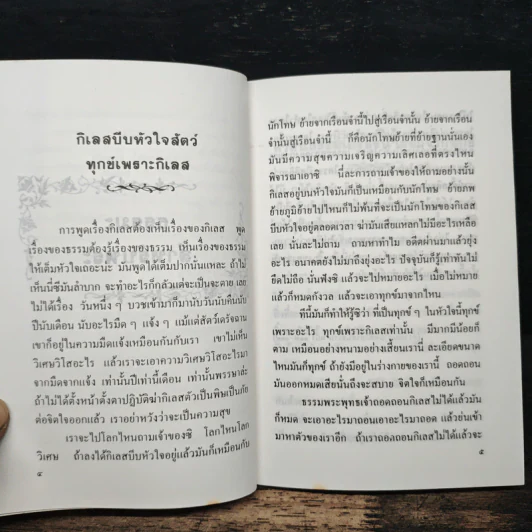 กิเลสบีบหัวใจสัตว์
ทุกข์เพราะกิเลส
การพูดเรื่องกิเลสต้องเห็นเรื่องของกิเลส พูด
เรื่องของธรรมต้องรู้เรื่องของธรรม เห็นเรื่องของธรรม
ให้เต็มหัวใจเถอะน่ะ มันพูดได้เต็มปากนั่นแหละ ถ้าไม่
เห็นนี่ซีมันลำบาก จะทำอะไรก็กลัวแต่จะเป็นจะตาย เลย
ไม่ได้เรื่อง วันหนึ่ง ๆ บวชเข้ามาก็มานับวันนับคืนนับ
ปีนับเดือน นับอะไรมืด ๆ แจ้ง ๆ แม้แต่สัตว์เดรัจฉาน
เขาก็อยู่ในความมืดแจ้งเหมือนกันกับเรา เขาไม่เห็น
วิเศษวิโสอะไร แล้วเราจะเอาความวิเศษวิโสอะไรมา
จากมืดจากแจ้ง เท่านั้นปีเท่านี้เดือน เท่านั้นพรรษาล่ะ
ถ้าไม่ได้ตั้งหน้าตั้งตาปฏิบัติฆ่ากิเลสตัวเป็นพิษเป็นภัย
ต่อจิตใจออกแล้ว เราอย่าหวังว่าจะเป็นความสุข
เราจะไปโลกไหนถามเจ้าของซิ โลกไหนโลก
วิเศษ ถ้าลงได้กิเลสบีบหัวใจอยู่แล้วมันก็เหมือนกับ
๔
นักโทษ ย้ายจากเรือนจำนี้ไปสู่เรือนจำนั้น ย้ายจากเรือน
จำนั้นมาสู่เรือนจำนี้ ก็คือนักโทษย้ายที่ย้ายฐานนั่นเอง
มันมีความสุขความเจริญความเลิศเลอที่ตรงไหน
พิจารณาเอาซิ นี่ละการถามเจ้าของให้ถามอย่างนั้น
กิเลสอยู่บนหัวใจมันก็เป็นเหมือนกับนักโทษ ย้ายภพ
ย้ายภูมิย้ายไปไหนก็ไม่พ้นที่จะเป็นนักโทษของกิเลส
บีบหัวอยู่ตลอดเวลา ฆ่ามันเสียแหลกไม่มีอะไรเหลือ
เลย นั่นละไม่ถาม ถามหาทำไม อดีตผ่านมาแล้วยุ่ง
อะไร อนาคตยังไม่มาถึงยุ่งอะไร ปัจจุบันก็รู้เท่าทันไม่
ยึดไม่ถือ นั่นฟังซิ แล้วจะไปหมายอะไร เมื่อไม่หมาย
แล้วก็หมดกังวล แล้วจะเอาทุกข์มาจากไหน
ทีนี้มันก็ทำให้รู้ซิว่า ที่เป็นทุกข์ ๆ ในหัวใจนี้ทุกข์
เพราะอะไร ทุกข์เพราะกิเลสเท่านั้น มีมากมีน้อยก็
ตาม เหมือนอย่างหนามอย่างเสี้ยนเรานี่ ละเอียดขนาด
ไหนมันก็ทุกข์ ถ้ามันยังมีอยู่ในร่างกายของเรานี้ ถอดถอน
มันออกหมดเสียนั่นถึงจะสบาย จิตใจก็เหมือนกัน
ธรรมพระพุทธเจ้าถอดถอนกิเลสไม่ได้แล้วมัน
ก็หมด จะเอาอะไรมาถอนเอาอะไรมาถอด แล้วย่นเข้า
มาหาตัวของเราอีก ถ้าเราถอดถอนกิเลสไม่ได้แล้วจะ
๕